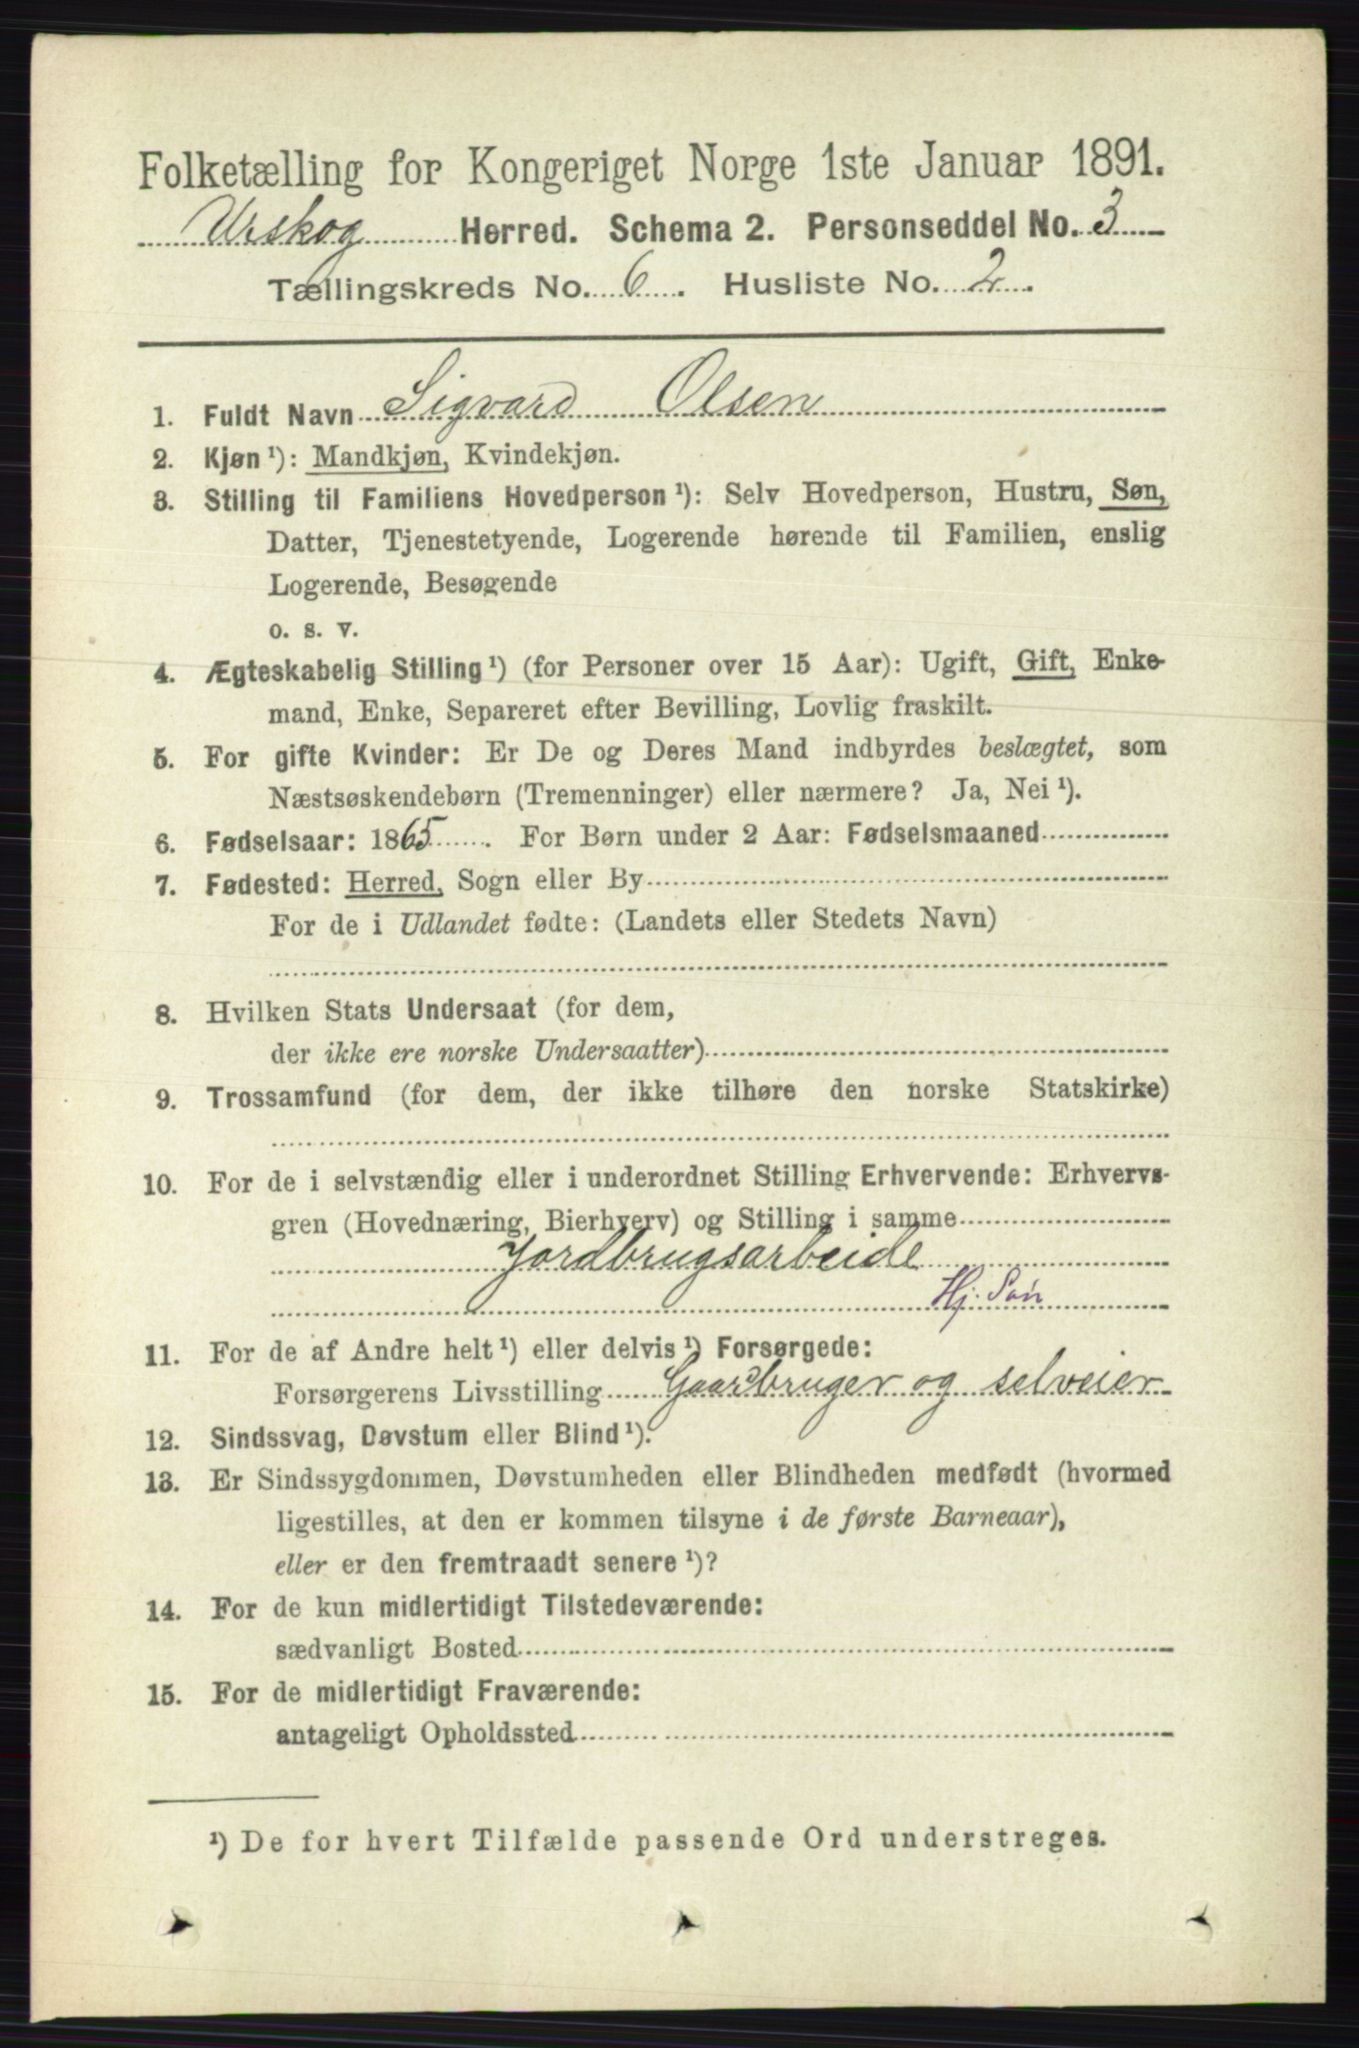 Folketælling for Kongeriget Norge 1ste Januar 1891.
Urskog Herred. Schema 2. Personseddel No. 3
Tællingskreds No. 6. Husliste No. 2.
1. Fuldt Navn Sigvard Olsen
2. Kjøn ¹): Mandkjøn, Kvindekjøn.
3. Stilling til Familiens Hovedperson ¹): Selv Hovedperson, Hustru, Søn,
Datter, Tjenestetyende, Logerende hørende til Familien, enslig
Logerende, Besøgende
o. s. v.
4. Ægteskabelig Stilling ¹) (for Personer over 15 Aar): Ugift, Gift, Enke-
mand, Enke, Separeret efter Bevilling, Lovlig fraskilt.
5. For gifte Kvinder: Er De og Deres Mand indbyrdes beslægtet, som
Næstsøskendebørn (Tremenninger) eller nærmere? Ja, Nei ¹).
6. Fødselsaar: 1865. For Børn under 2 Aar: Fødselsmaaned
7. Fødested: Herred, Sogn eller By
For de i Udlandet fødte: (Landets eller Stedets Navn)
8. Hvilken Stats Undersaat (for dem,
der ikke ere norske Undersaatter)
9. Trossamfund (for dem, der ikke tilhøre den norske Statskirke)
10. For de i selvstændig eller i underordnet Stilling Erhvervende: Erhvervs-
gren (Hovednæring, Bierhverv) og Stilling i samme
Jordbrugsarbeide
Hj. Søn
11. For de af Andre helt ¹) eller delvis ¹) Forsørgede:
Forsørgerens Livsstilling Gaardbruger og selveier
12. Sindssvag, Døvstum eller Blind ¹).
13. Er Sindssygdommen, Døvstumheden eller Blindheden medfødt (hvormed
ligestilles, at den er kommen tilsyne i de første Barneaar),
eller er den fremtraadt senere ¹)?
14. For de kun midlertidigt Tilstedeværende:
sædvanligt Bosted
15. For de midlertidigt Fraværende:
antageligt Opholdssted
¹) De for hvert Tilfælde passende Ord understreges.